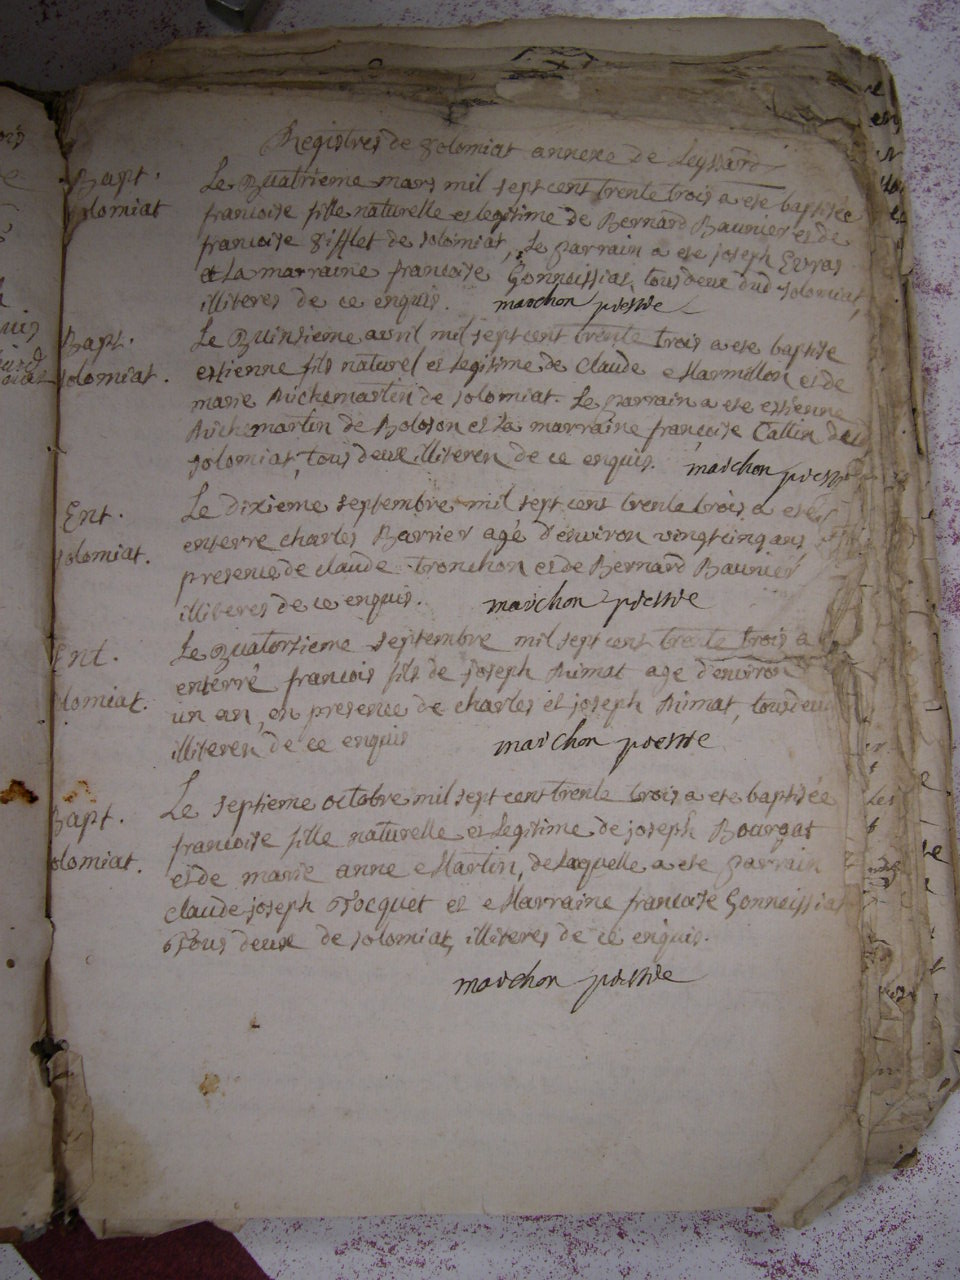 Registres de Solomiat annexe de Leyssard
Bapt.
solomiat
Le Quatrieme mars mil sept cent trente trois a ete baptisée
francoise fille naturelle et legitime de Bernard Baunier et de
francoise Sifflet de solomiat, Le parrain a ete joseph Evras
et La marraine francoise Gonnoissiat, tous deux dud solomiat,
illiteres de ce enquis. marchon prestre
Bapt.
solomiat.
Le Quinsieme avril mil sept cent trente trois a ete baptise
estienne fils naturel et legitime de claude Marmillon et de
marie Richemartin de solomiat. Le parrain a ete estienne
Richemartin de Boloson et la marraine françoise Cattin de
solomiat, tous deux illiteres de ce enquis. marchon prestre
Ent.
solomiat.
Le dixieme septembre mil sept cent trente trois a ete
enterre charles Barrier agé d'environ vingtcinq ans
presence de claude tronchon et de Bernard Baunier
illiteres de ce enquis. marchon prestre
Ent.
solomiat.
Le Quatorsieme septembre mil sept cent trente trois a
enterré francois fils de joseph Rimat age d'environ
un an, en presence de charles et joseph Rimat, tous deux
illiteres de ce enquis marchon prestre
Bapt.
solomiat.
Le septieme octobre mil sept cent trente trois a ete baptisée
francoise fille naturelle et Legitime de joseph Bourgat
et de marie anne Martin, de laquelle a ete parrain
claude joseph Tocquet et Marraine francoise Gonnoissiat
Tous deux de solomiat, illiteres de ce enquis.
marchon prestre